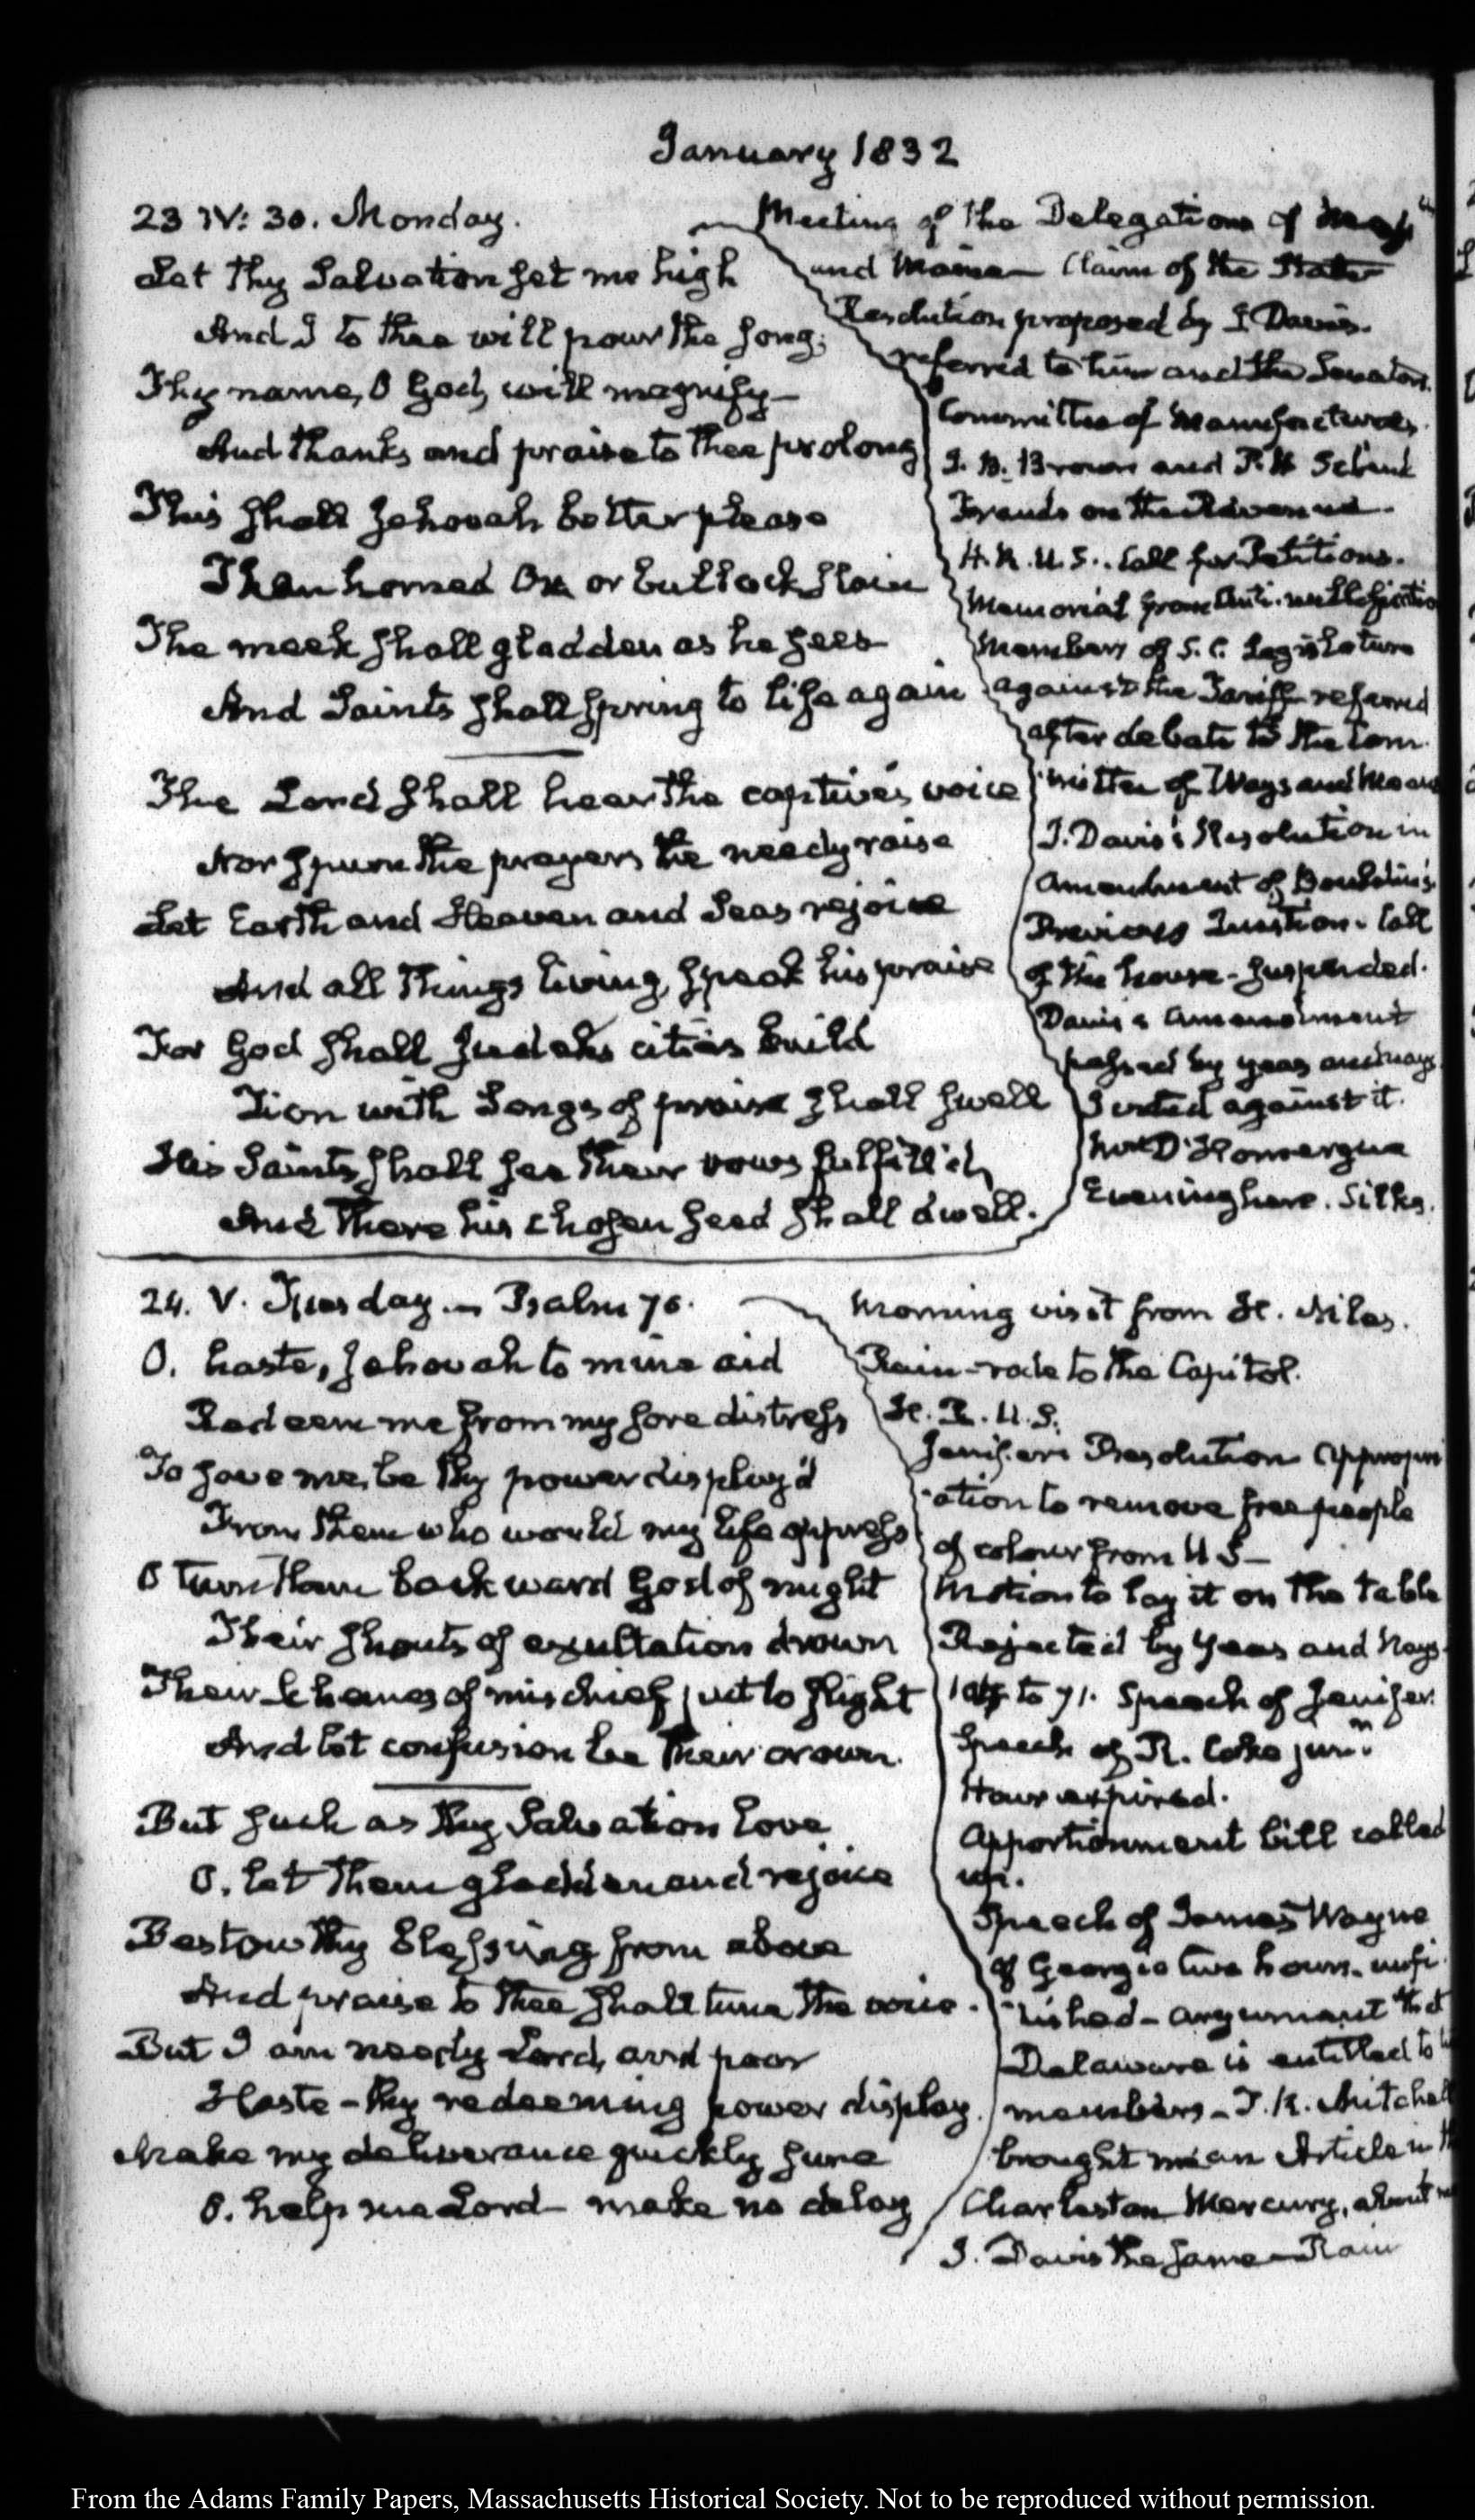 January 1832
23 IV: 30. Monday.
Let thy Salvation set me high
And I to thee will pour the song;
Thy name, O God, will magnify—
And thanks and praise to thee prolong
This shall Jehovah better please
Than horned Ox or bullock slain
The meek shall gladden as he sees
And Saints shall spring to life again
The Lord shall hear the captive's voice
Nor spurn the prayers the needy raise
Let Earth and Heaven and Seas rejoice
And all things living, speak his praise
For God shall Judah's cities build
Zion with Songs of praise shall swell
His Saints shall see their vows fulfill'd,
And there his chosen seed shall dwell.
Meeting of the Delegations of Mass
and Maine — Claim of the State
Resolution proposed by J. Davis.
referred to him and the Senators.
Committee of Manufactures.
J. B. Brown and P. H. Schenk
Frauds on the Revenue.
H. R. U. S.. Call for Petitions.
Memorial from Anti-nullificatio
Members of S. C. Legislature
against the Tariff referred
after debate to the Com-
mittee of Ways and Means
J. Davis's Resolution in
Amendment of Bouldin's
Previous Question. Call
of the house - suspended.
Davis's Amendment
passed by yeas and nays
I voted against it.
D'Homergue
Evening here. Silks.
24. V. Tuesday — Psalm 70.
O. haste, Jehovah to mine aid
Redeem me from my sore distress
To save me, be thy power display'd
From them who would my life oppress
O turn them backward God of might
Their shouts of exultation drown
Their schemes of mischief put to flight
And let confusion be their crown.
But such as thy Salvation love
O. let them gladden and rejoice
Bestow thy blessing from above
And praise to thee shall tune the voice.
But I am needy Lord, and poor
Haste - thy redeeming power display.
Make my deliverance quickly sure
O. help me Lord — make no delay
Morning visit from H. Niles.
Rain - rode to the Capitol.
H. R. U. S.
Jenifer's Resolution Appropri
ation to remove free people
of colour from U S —
Motion to lay it on the table
Rejected by Yeas and Nays
to 71. Speech of Jenifer.
Speech of R. Coke junr.
Hour expired.
Apportionment bill called
up.
Speech of James Wayne
of Georgia two hours. unfi
nished - argument that
Delaware is entitled to
members - T. R. Mitchell
brought me an Article in
Charleston Mercury, about
J. Davis the same — Rain
From the Adams Family Papers, Massachusetts Historical Society. Not to be reproduced without permission.